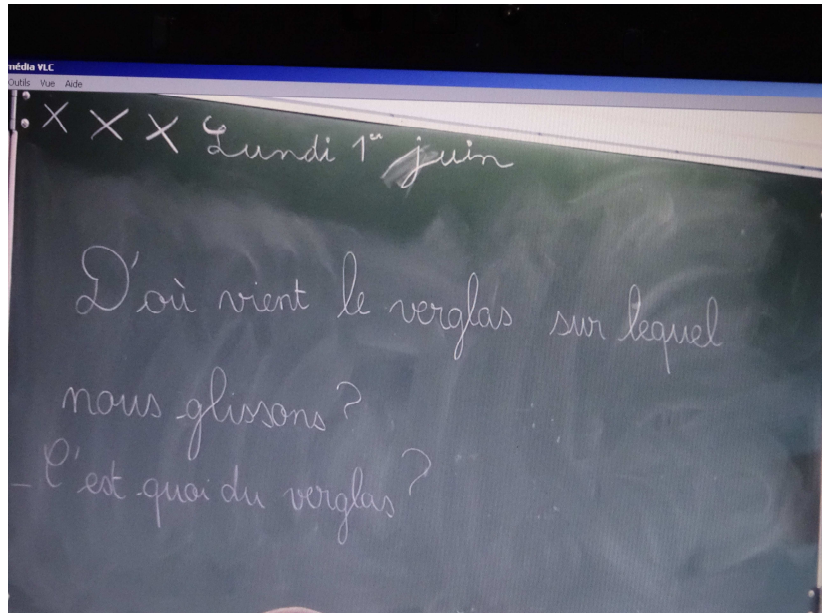 média VLC
Outils Vue Aide
X X X Lundi 1er juin
D'où vient le verglas sur lequel
nous glissons?
_ C'est quoi du verglas?